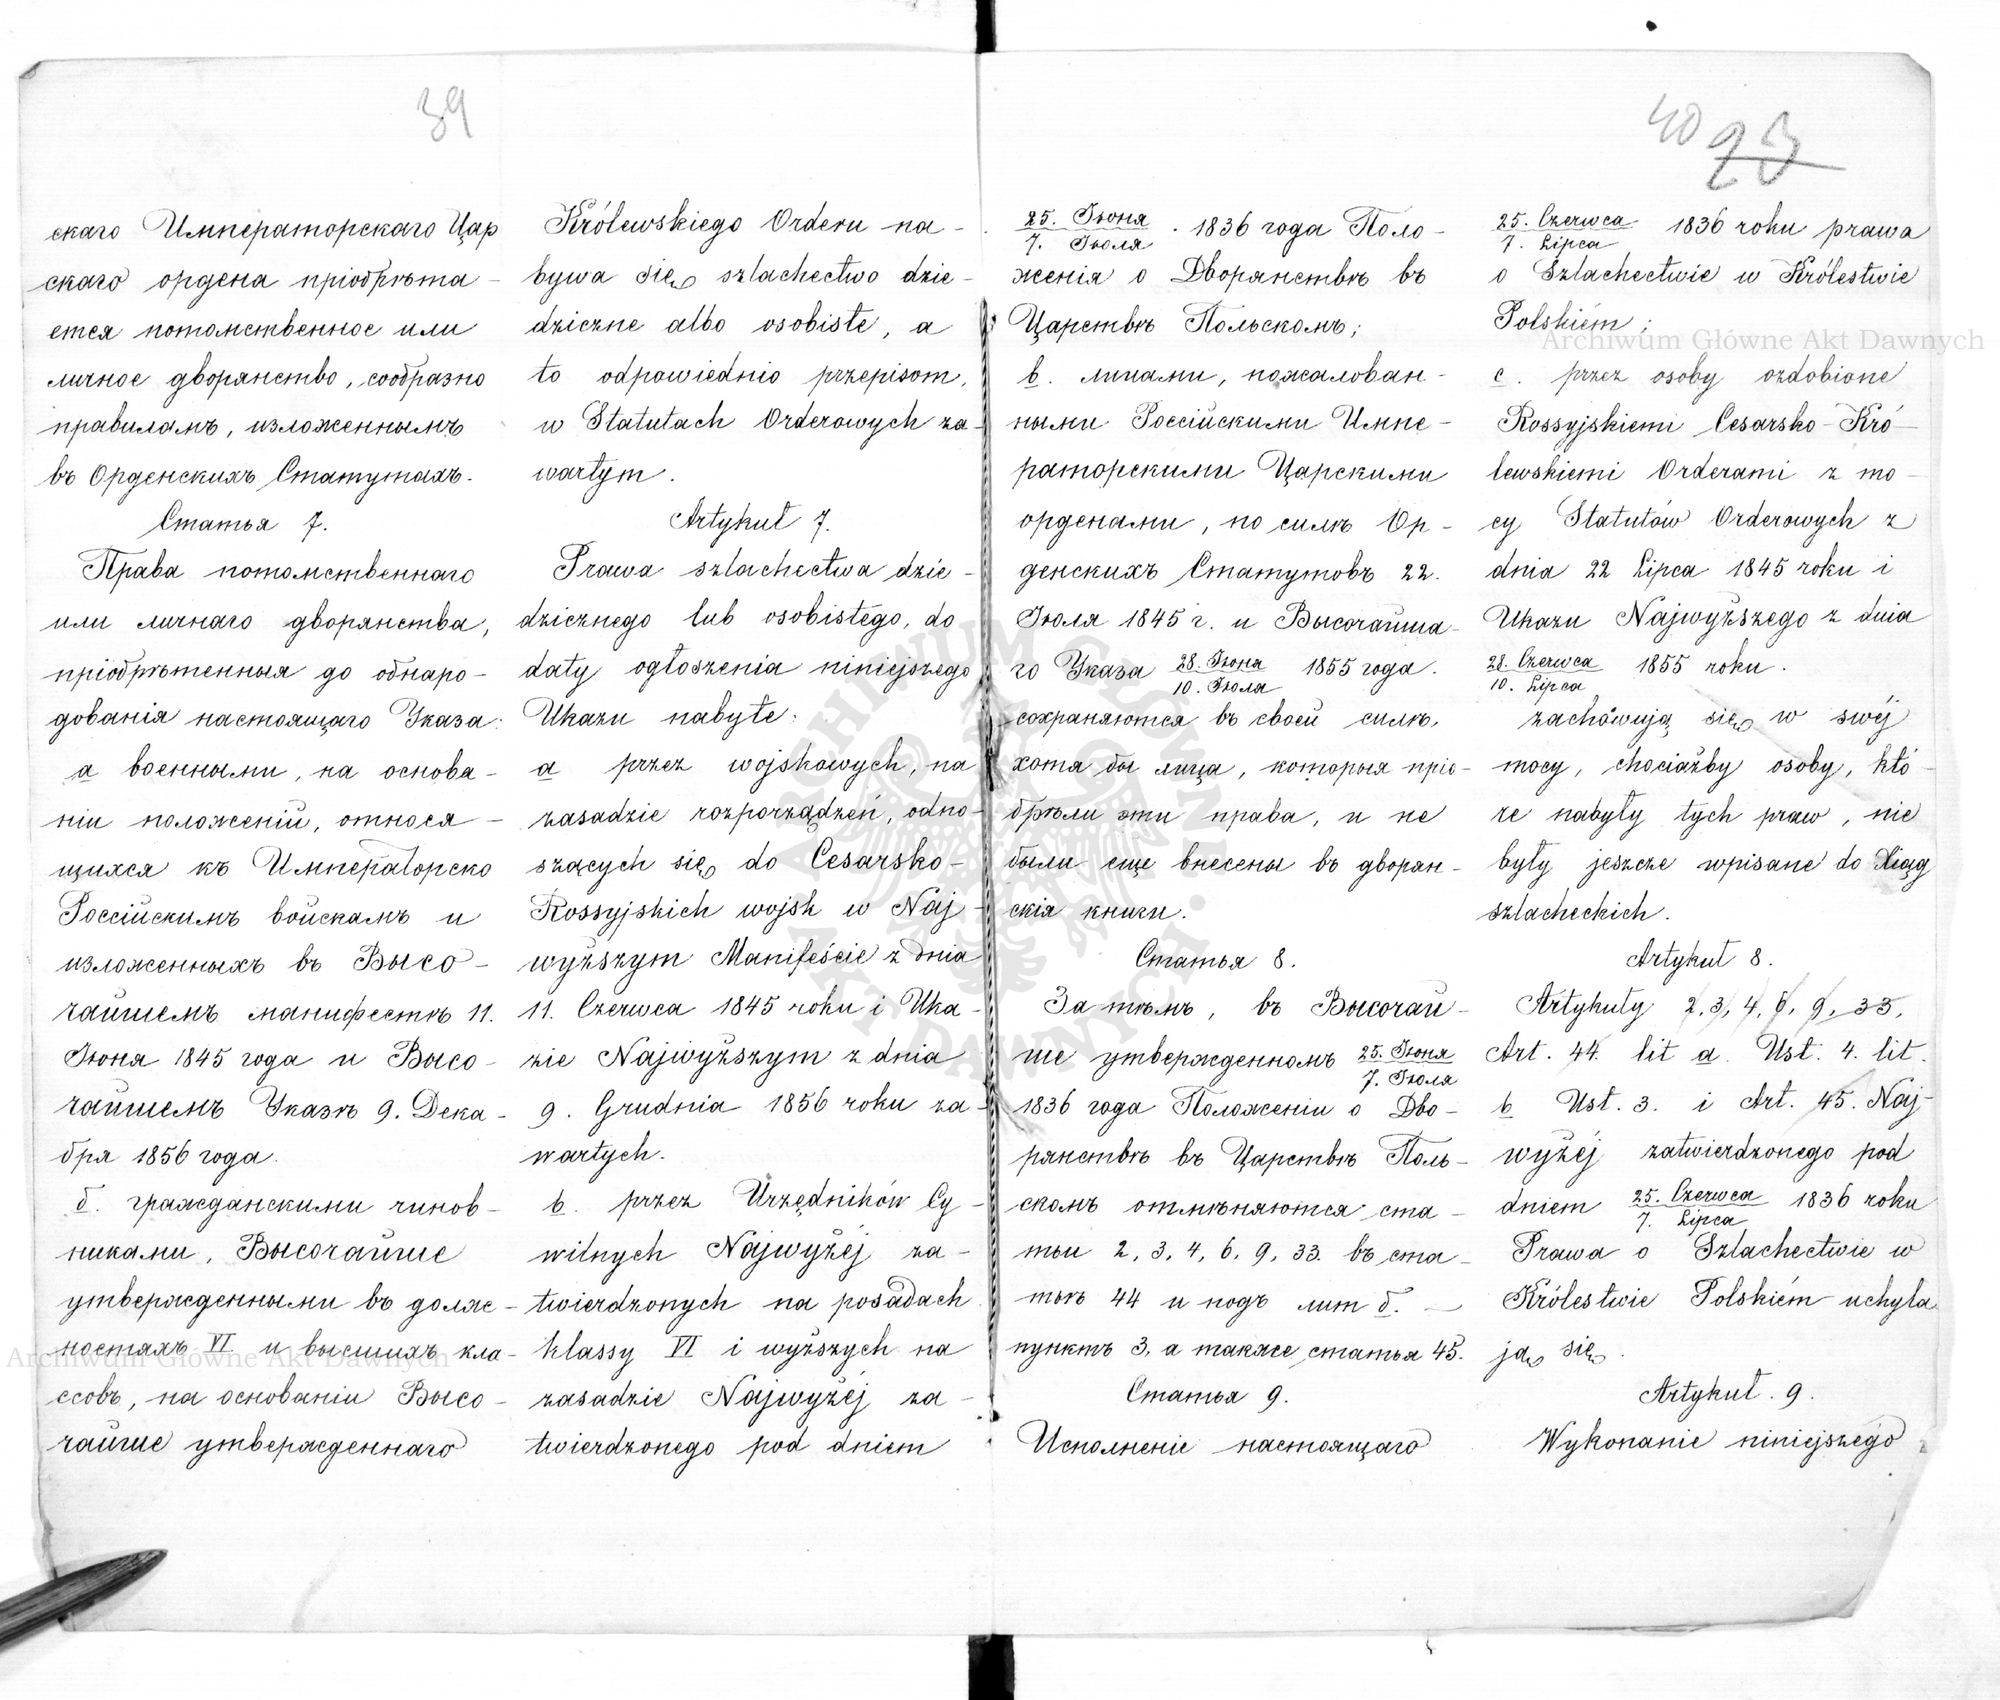 39
скаго Императорскаго Цар
скаго ордена пріобрѣта-
ется потомственное или
личное дворянство, сообразно
правиламъ, изложеннымъ
въ Орденскихъ Статутахъ.
Статья 7.
Права потомственнаго
или личнаго дворянства,
пріобрѣтенныя до обнаро-
дованія настоящаго Указа:
а военными, на основа-
ніи положеній, относя-
щихся къ Императорско
Россійскимъ войскамъ и
изложенныхъ въ Высо-
чайшемъ манифестѣ 11.
Іюня 1845 года и Высо-
чайшемъ Указѣ 9. Дека-
бря 1856 года.
б. гражданскими чинов-
никами, Высочайше
утвержденными въ долж-
ностяхъ VI и высшихъ кла-
ссовъ, на основаніи Высо-
чайше утвержденнаго
Królewskiego Orderu na-
bywa się szlachectwo dzie-
dziczne albo osobiste, a
to odpowiednio przepisom,
w Statutach Orderowych za-
wartym.
Artykuł 7.
Prawa szlachectwa dzie-
dzicznego lub osobistego, do
daty ogłoszenia niniejszego
Ukazu nabyte:
a przez wojskowych, na
zasadzie rozporządzeń, odno-
szących się do Cesarsko-
Rossyjskich wojsk w Naj-
wyższym Manifeście z dnia
11. Czerwca 1845 roku i Uka-
zie Najwyższym z dnia
9. Grudnia 1856 roku za-
wartych.
b. przez Urzędników Cy-
wilnych Najwyżéj za-
twierdzonych na posadach
klassy VI i wyższych na
zasadzie Najwyżéj za-
twierdzonego pod dniem
40 23
25. Іюня / 7. Іюля 1836 года Поло-
женія о Дворянствѣ въ
Царствѣ Польскомъ;
в. лицами, пожалован-
ными Россійскими Импе-
раторскими Царскими
орденами, по силѣ Ор-
денскихъ Статутовъ 22.
Іюля 1845 г. и Высочайша-
го Указа 28. Іюня / 10. Іюля 1855 года.
сохраняются въ своей силѣ,
хотя бы лица, которыя прі-
обрѣли эти права, и не
были еще внесены въ дворян-
скія книги.
Статья 8.
За тѣмъ, въ Высочай-
ше утвержденномъ 25. Іюня / 7. Іюля
1836 года Положеніи о Дво-
рянствѣ въ Царствѣ Поль-
скомъ отмѣняются ста-
тьи 2, 3, 4, 6, 9, 33. въ ста-
тьѣ 44 и подъ лит б. —
пунктъ 3, а также статья 45.
Статья 9.
Исполненіе настоящаго
25. Czerwca / 7. Lipca 1836 roku prawa
o Szlachectwie w Królestwie
Polskiém;
c. przez osoby ozdobione
Rossyjskiemi Cesarsko-Kró-
lewskiemi Orderami z mo-
cy Statutów Orderowych z
dnia 22 Lipca 1845 roku i
Ukazu Najwyższego z dnia
28. Czerwca / 10. Lipca 1855 roku.
zachowują się w swéj
mocy, chociażby osoby, któ-
re nabyły tych praw, nie
były jeszcze wpisane do Xiąg
szlacheckich.
Artykuł 8.
Artykuły 2, 3, 4, 6, 9, 33,
Art. 44. lit a. Ust. 4. lit.
b Ust. 3. i Art. 45. Naj-
wyżéj zatwierdzonego pod
dniem 25. Czerwca / 7. Lipca 1836 roku
Prawa o Szlachectwie w
Królestwie Polskiém uchyla
ją się.
Artykuł. 9.
Wykonanie niniejszego
Archiwum Główne Akt Dawnych
Archiwum Główne Akt Dawnych
ARCHIWUM GŁÓWNE AKT DAWNYCH